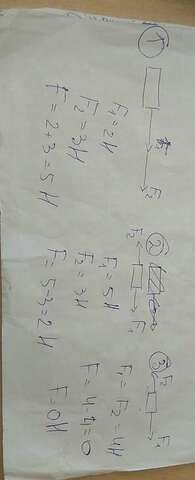 1
F₂
F₁ = 2 Н
F₂ = 3 Н
F = 2 + 3 = 5 Н
2
F₂
F₁
F₁ = 5 Н
F₂ = 3 Н
F = 5 - 3 = 2 Н
3
F₂
F₁
F₁ = F₂ = 4 Н
F = 4 - 4 = 0
F = 0 Н